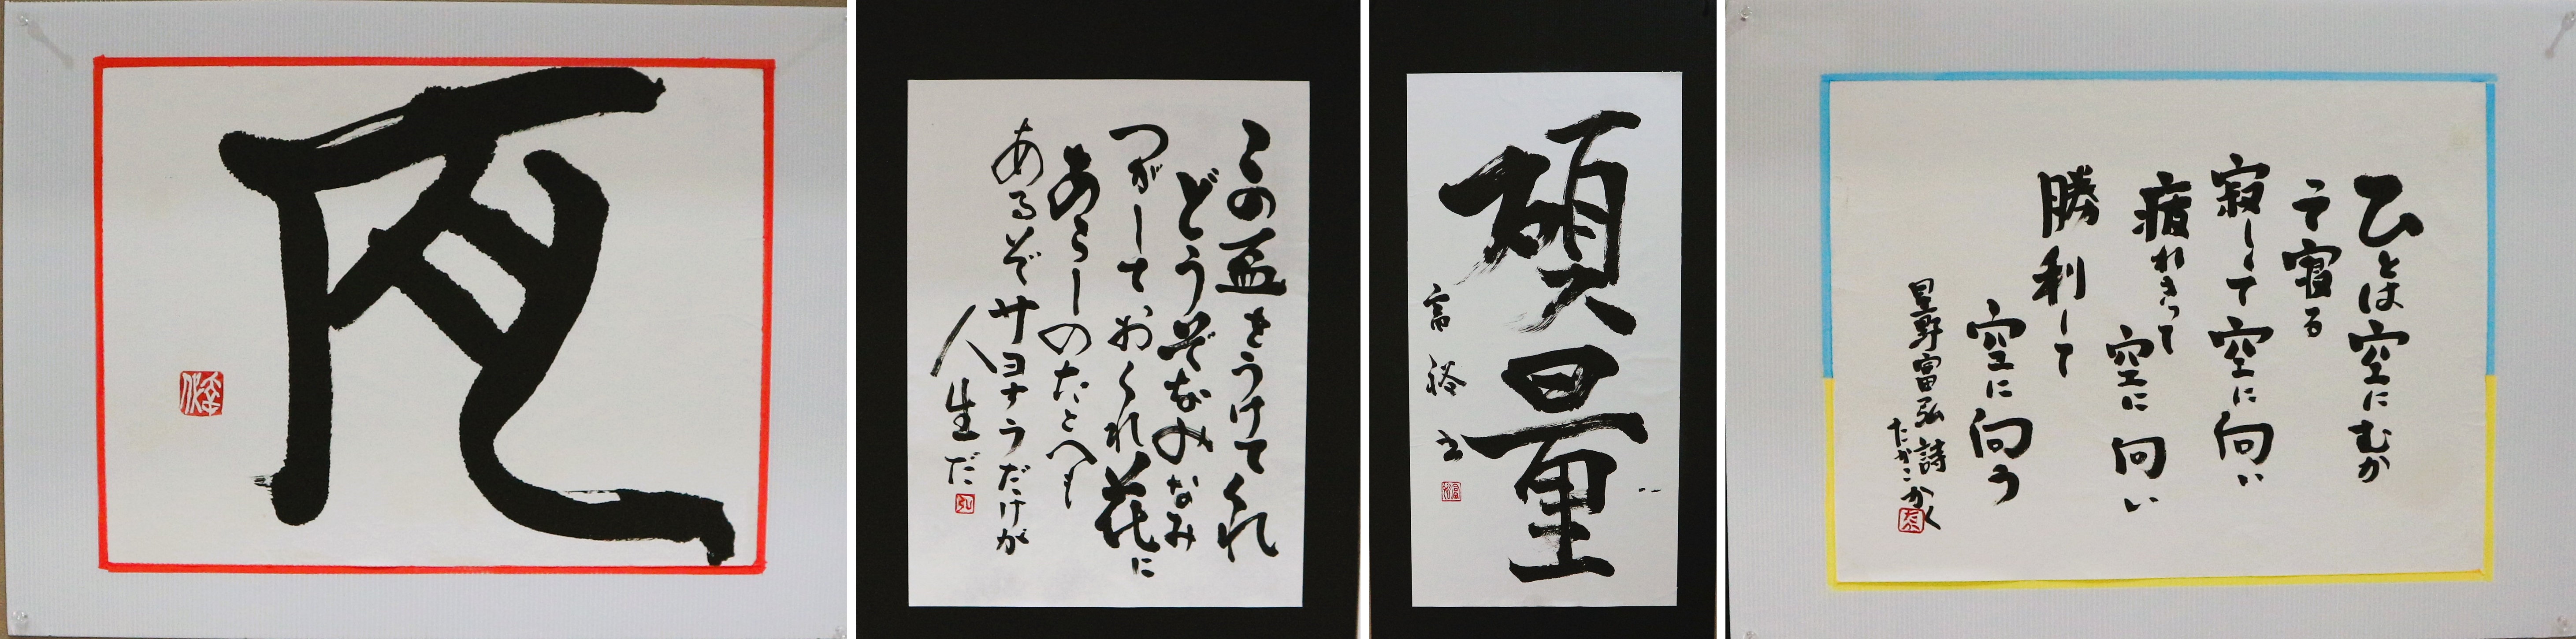 この盃をうけてくれ
どうぞなみなみ
つがしておくれ花に
あらしのたとへも
あるぞサヨナラだけが
人生だ
碩量
富裕
ひとは空にむか
って寝る
寂しくて空に向い
疲れきって空に向い
勝利して
空に向う
星野富弘詩
たかこかく